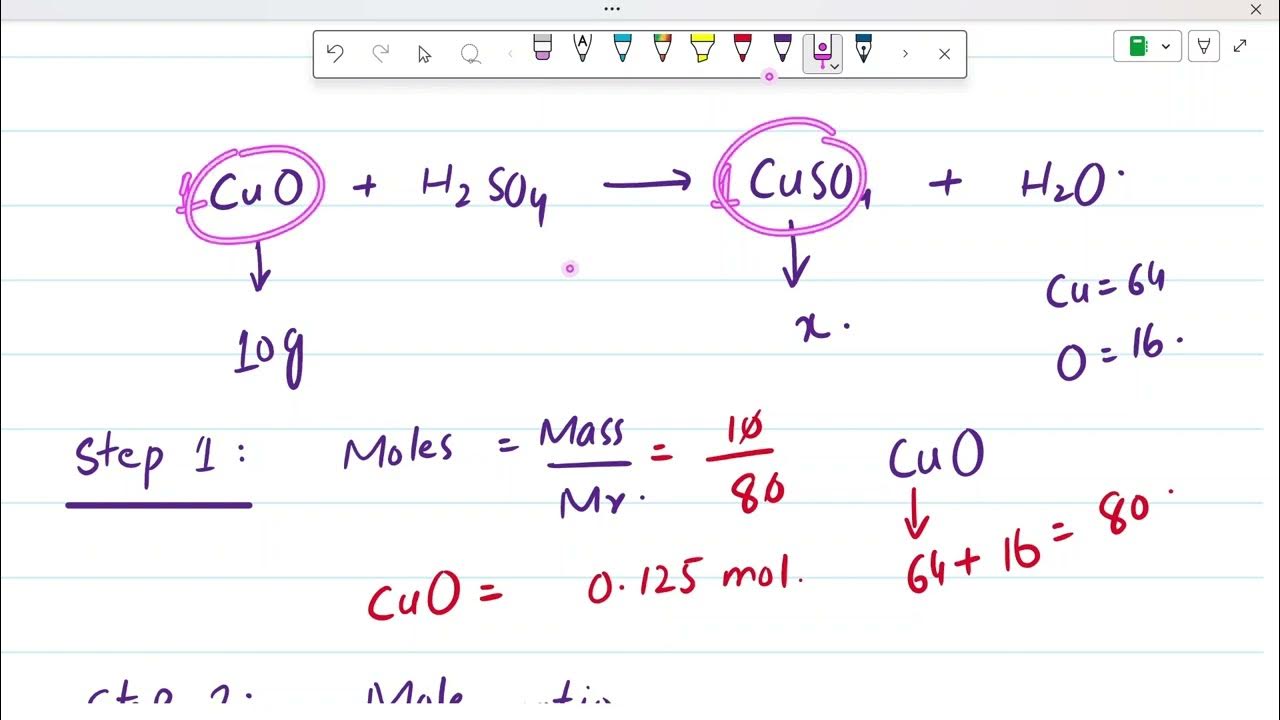 1 CuO + H₂SO₄ → 1 CuSO₄ + H₂O.
↓ ↓
10g x.
Cu = 64
O = 16.
Step 1: Moles = Mass / Mr. = 10 / 80
CuO
↓
64 + 16 = 80
CuO = 0.125 mol.
Step 2: Mole ratio